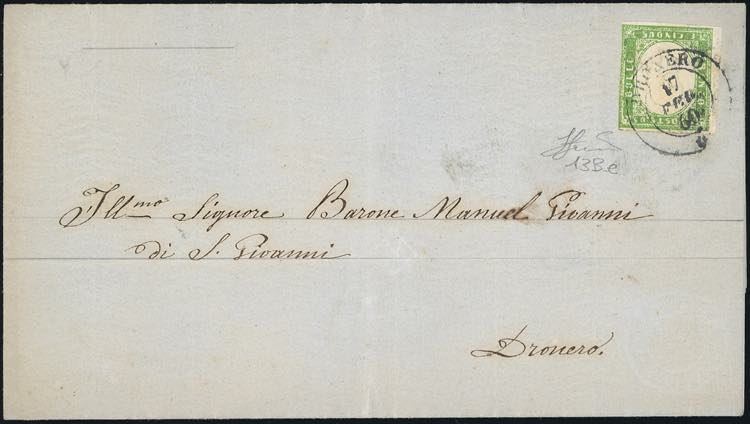 C. CINQUE
DRONERO
17
FEB
60
13Be
Ill.mo Signore Barone Manuel Giovanni
di S. Giovanni
Dronero.